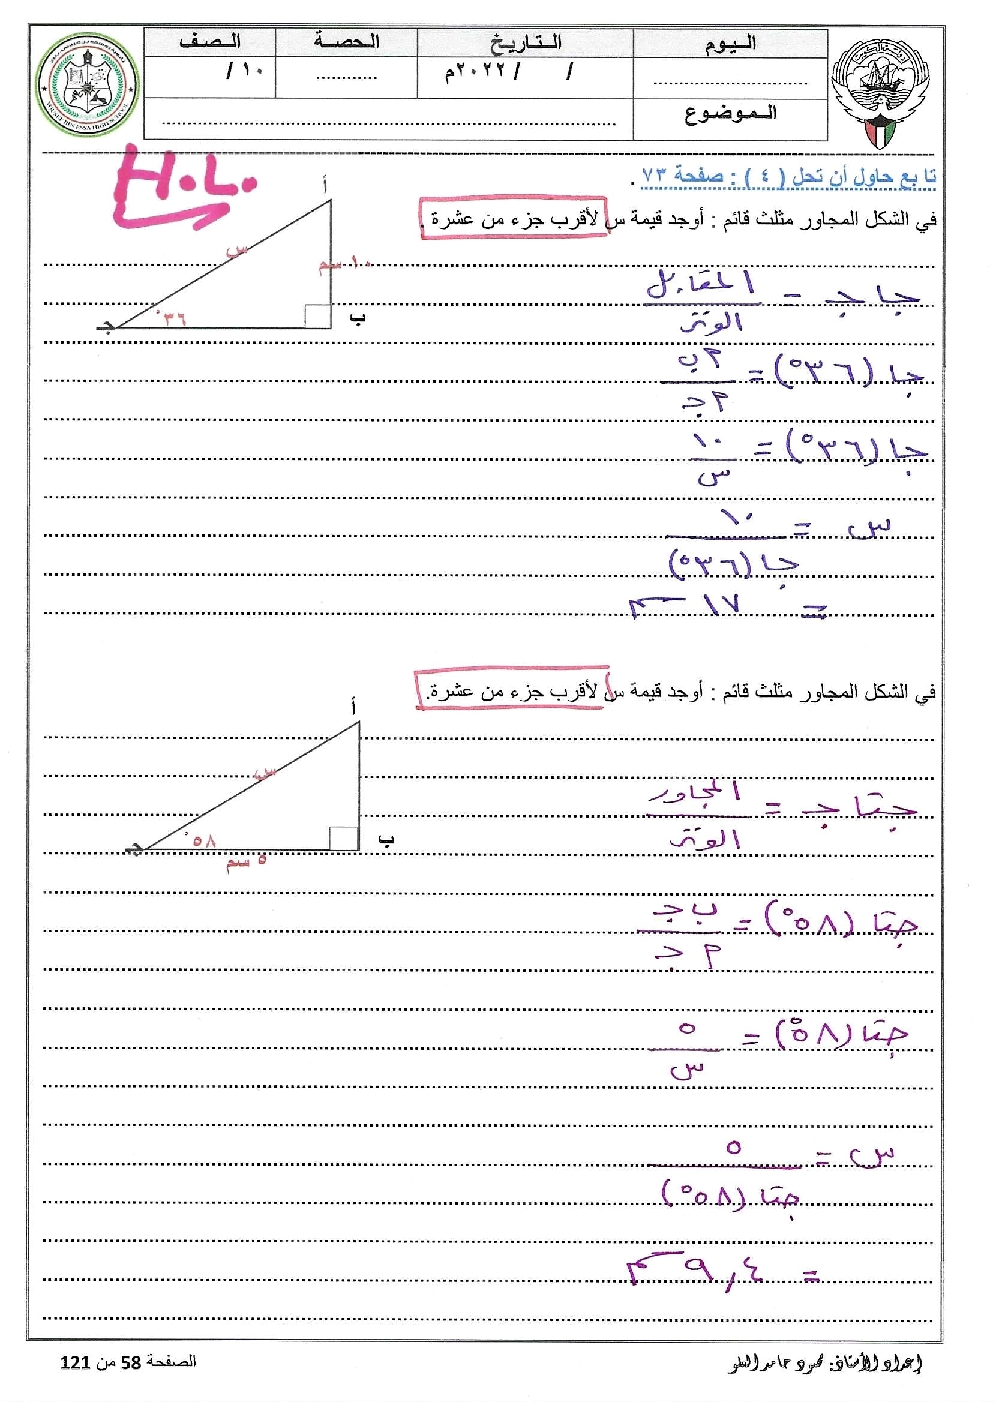 اليوم
التاريخ
الحصة
الصف
........................
/ / ٢٠٢٢م
............
١٠ /
الموضوع
........................
تابع حاول أن تحل ( ٤ ) : صفحة ٧٣ .
H.L.
في الشكل المجاور مثلث قائم : أوجد قيمة س لأقرب جزء من عشرة .
أ
س
١٠ سم
ب
جـ
٣٦°
جا جـ = المقابل / الوتر
جا (٣٦°) = ٢ب / ٢جـ
جا (٣٦°) = ١٠ / س
س = ١٠ / جا (٣٦°)
= ١٧ سم
في الشكل المجاور مثلث قائم : أوجد قيمة س لأقرب جزء من عشرة.
أ
س
ب
جـ
٥٨°
٥ سم
جتا جـ = المجاور / الوتر
جتا (٥٨°) = ب جـ / ٢ جـ
جتا (٥٨°) = ٥ / س
س = ٥ / جتا (٥٨°)
= ٩,٤ سم
إعداد الأستاذ: محمود حامد
الصفحة 58 من 121